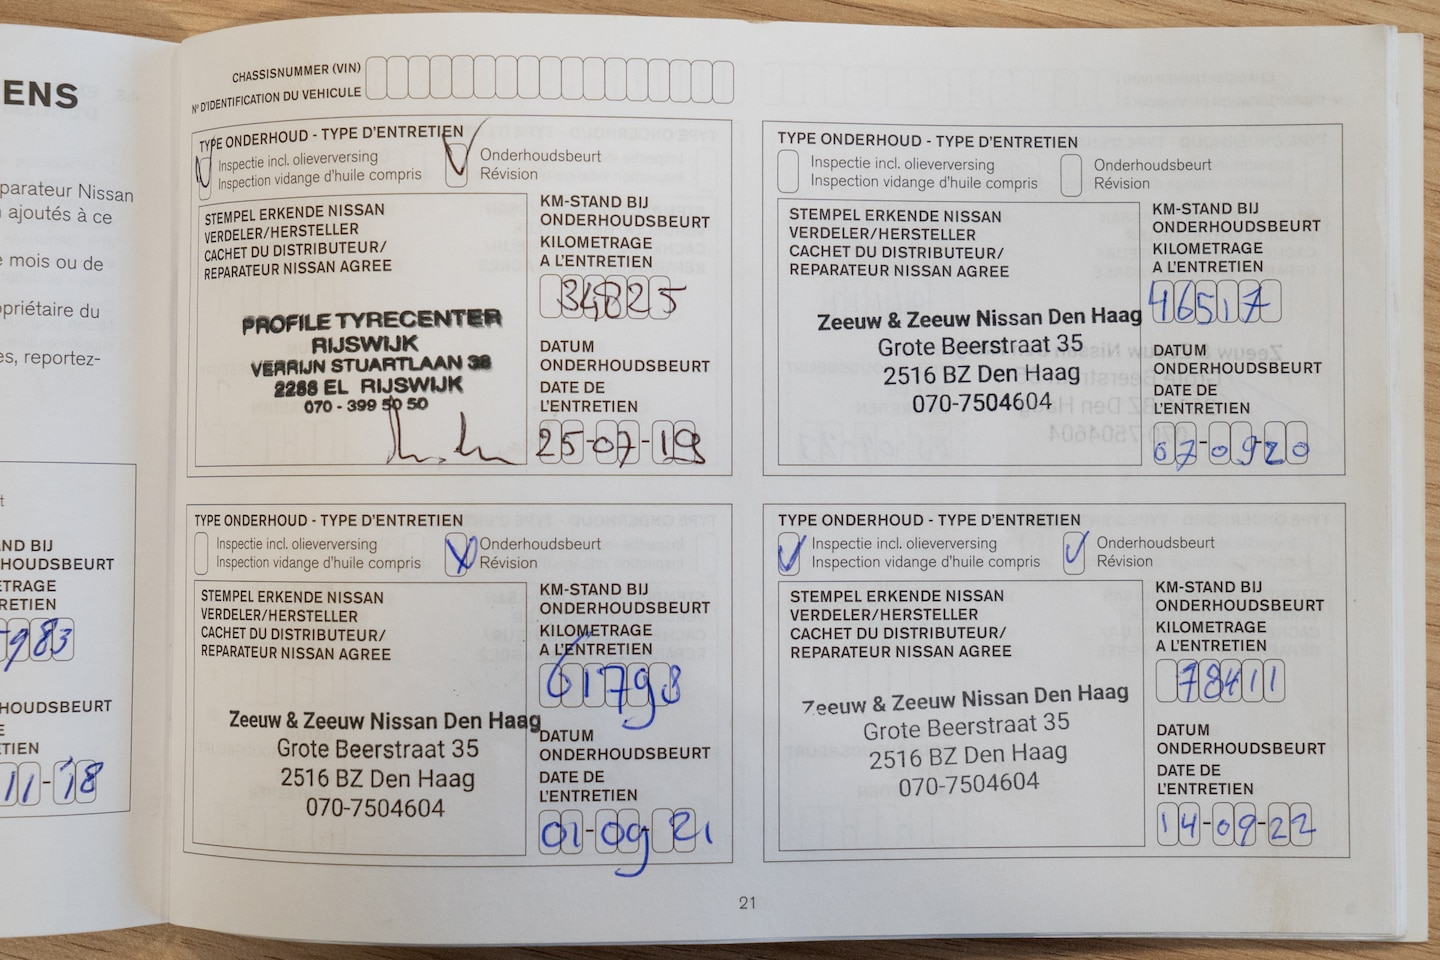 ENS
parateur Nissan
ajoutés à ce
mois ou de
opriétaire du
es, reportez-
t
AND BIJ
HOUDSBEURT
ETRAGE
RETIEN
983
HOUDSBEURT
E
TIEN
11-18
CHASSISNUMMER (VIN)
N° D'IDENTIFICATION DU VEHICULE
TYPE ONDERHOUD - TYPE D'ENTRETIEN
Inspectie incl. olieverversing
Inspection vidange d'huile compris
Onderhoudsbeurt
Révision
STEMPEL ERKENDE NISSAN
VERDELER/HERSTELLER
CACHET DU DISTRIBUTEUR/
REPARATEUR NISSAN AGREE
PROFILE TYRECENTER
RIJSWIJK
VERRIJN STUARTLAAN 38
2288 EL RIJSWIJK
070 - 399 50 50
KM-STAND BIJ
ONDERHOUDSBEURT
KILOMETRAGE
A L'ENTRETIEN
34825
DATUM
ONDERHOUDSBEURT
DATE DE
L'ENTRETIEN
25-07-19
TYPE ONDERHOUD - TYPE D'ENTRETIEN
Inspectie incl. olieverversing
Inspection vidange d'huile compris
Onderhoudsbeurt
Révision
STEMPEL ERKENDE NISSAN
VERDELER/HERSTELLER
CACHET DU DISTRIBUTEUR/
REPARATEUR NISSAN AGREE
Zeeuw & Zeeuw Nissan Den Haag
Grote Beerstraat 35
2516 BZ Den Haag
070-7504604
KM-STAND BIJ
ONDERHOUDSBEURT
KILOMETRAGE
A L'ENTRETIEN
46517
DATUM
ONDERHOUDSBEURT
DATE DE
L'ENTRETIEN
07-0920
TYPE ONDERHOUD - TYPE D'ENTRETIEN
Inspectie incl. olieverversing
Inspection vidange d'huile compris
Onderhoudsbeurt
Révision
STEMPEL ERKENDE NISSAN
VERDELER/HERSTELLER
CACHET DU DISTRIBUTEUR/
REPARATEUR NISSAN AGREE
Zeeuw & Zeeuw Nissan Den Haag
Grote Beerstraat 35
2516 BZ Den Haag
070-7504604
KM-STAND BIJ
ONDERHOUDSBEURT
KILOMETRAGE
A L'ENTRETIEN
61798
DATUM
ONDERHOUDSBEURT
DATE DE
L'ENTRETIEN
01-09-21
TYPE ONDERHOUD - TYPE D'ENTRETIEN
Inspectie incl. olieverversing
Inspection vidange d'huile compris
Onderhoudsbeurt
Révision
STEMPEL ERKENDE NISSAN
VERDELER/HERSTELLER
CACHET DU DISTRIBUTEUR/
REPARATEUR NISSAN AGREE
Zeeuw & Zeeuw Nissan Den Haag
Grote Beerstraat 35
2516 BZ Den Haag
070-7504604
KM-STAND BIJ
ONDERHOUDSBEURT
KILOMETRAGE
A L'ENTRETIEN
78411
DATUM
ONDERHOUDSBEURT
DATE DE
L'ENTRETIEN
14-09-22
21